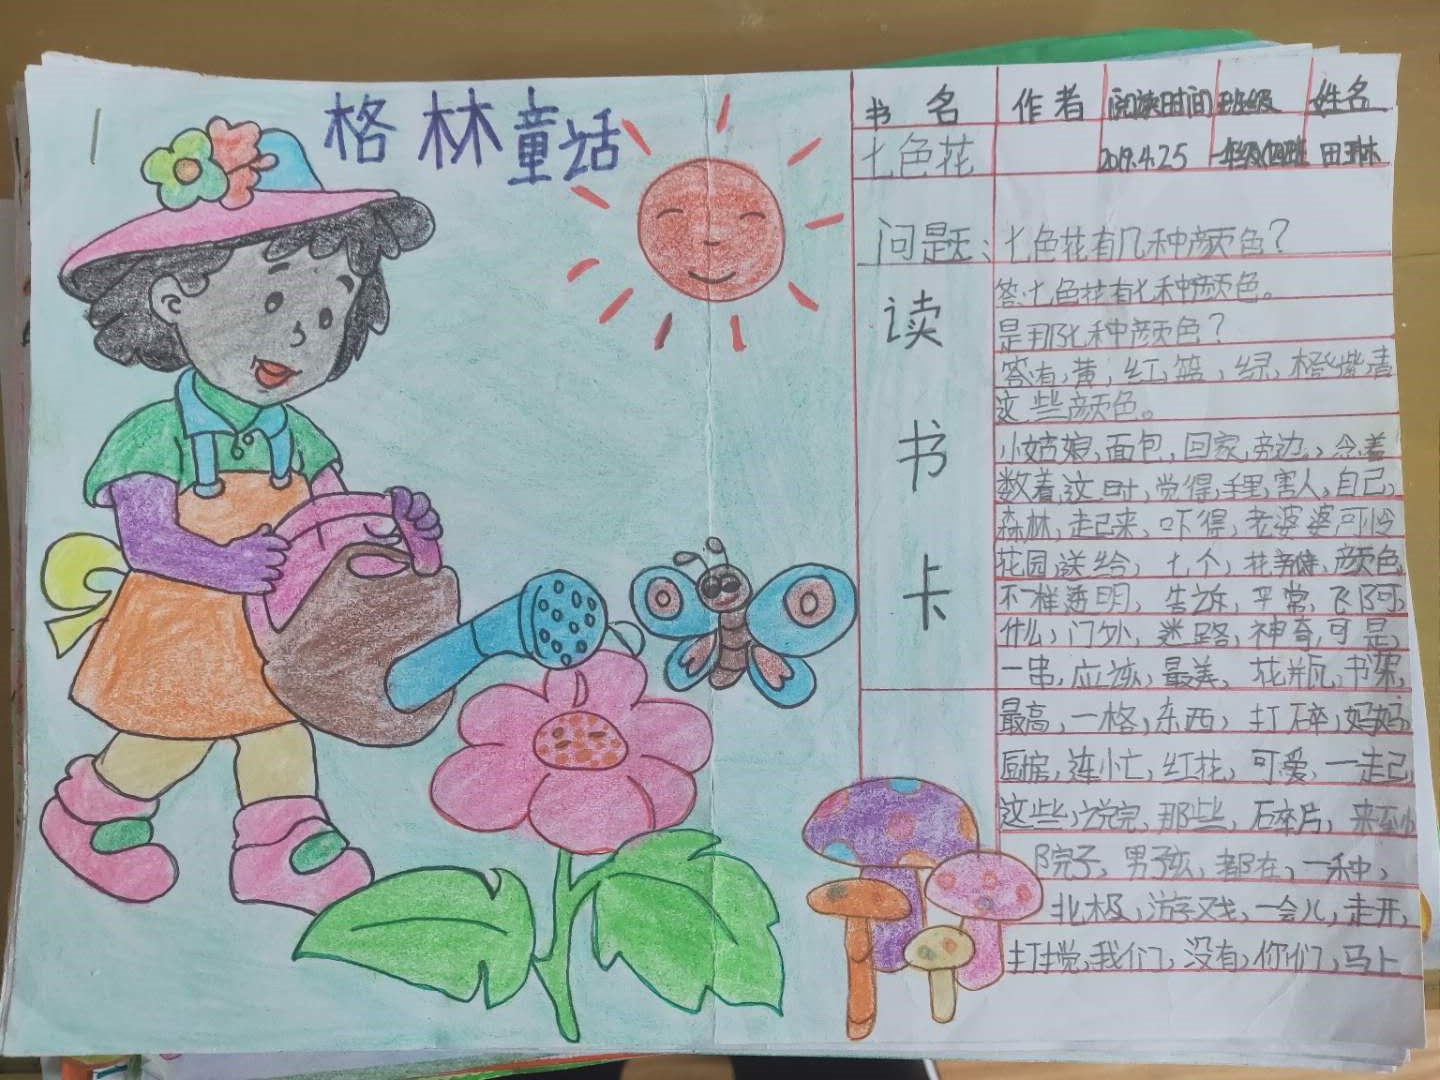 格林童话
书名 作者 阅读时间 班级 姓名
七色花 2019.4.25 一年级四班 田琳
问题：七色花有几种颜色？
答：七色花有七种颜色。
是那七种颜色？
答有，黄，红，篮，绿，橙紫青
这些颜色。
读书卡
小姑娘，面包，回家，旁边，念着
数着，这时，觉得，手里，害人，自己，
森林，走起来，吓得，老婆婆可怜
花园送给，七个，花瓣，颜色，
不一样透明，告诉，平常，飞阿，
什么，门外，迷路，神奇，可是，
一串，应该，最美，花瓶，书架，
最高，一格，东西，打碎，妈妈，
厨房，连忙，红花，可爱，一起
这些，说完，那些，碎片，来到
院子，男孩，都在，一种，
北极，游戏，一会儿，走开，
打搅，我们，没有，你们，马上